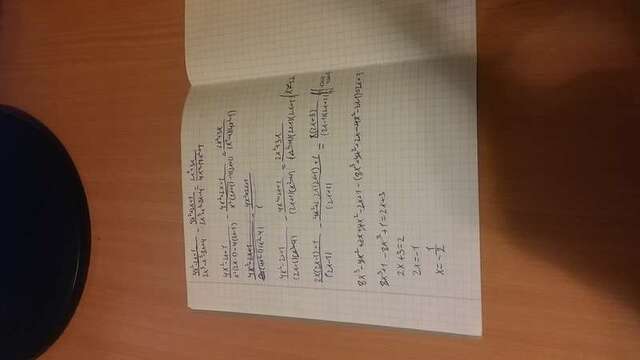 4x²-2x+1 / 2x³-x²-8x+4 - 4x²+2x+1 / 2x³+x²-8x-4 = 2x²+3x
4x²-2x+1 / x²(2x-1)-4(2x-1) - 4x²+2x+1 / x²(2x+1)-4(2x+1) = 2x²+3x / (x²-4)(4x²-1)
4x²-2x+1 - 4x²+2x+1
4x²-2x+1 / (2x-1)(x²-4) - 4x²+2x+1 / (2x+1)(x²-4) = 2x²+3x / (x²-4)(2x-1)(2x+1)
2x(2x-1)+1 / (2x-1) - / (2x+1) = (2x+3) / (2x-1)(2x+1)
8x³-4x²+2x+4x²-2x+1-(8x³+4x²+2x-4x²-2x-1)=2x+3
8x³+1-8x³+1=2x+3
2x+3=2
2x=-1
x=-1/2